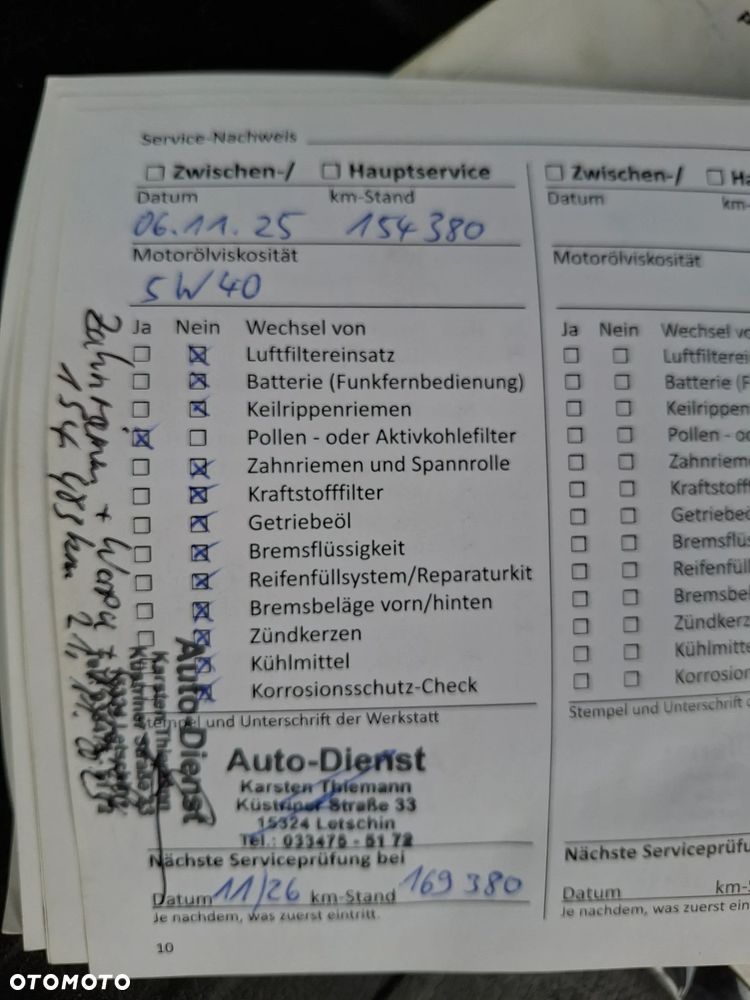 Service-Nachweis
☐ Zwischen-/ ☐ Hauptservice
Datum km-Stand
06.11.25 154380
Motorölviskosität
5W40
Ja Nein Wechsel von
☐ ☒ Luftfiltereinsatz
☐ ☒ Batterie (Funkfernbedienung)
☐ ☒ Keilrippenriemen
☒ ☐ Pollen - oder Aktivkohlefilter
☐ ☒ Zahnriemen und Spannrolle
☐ ☒ Kraftstofffilter
☐ ☒ Getriebeöl
☐ ☒ Bremsflüssigkeit
☐ ☒ Reifenfüllsystem/Reparaturkit
☐ ☒ Bremsbeläge vorn/hinten
☐ ☒ Zündkerzen
☒ Kühlmittel
☒ Korrosionsschutz-Check
Stempel und Unterschrift der Werkstatt
Auto-Dienst
Karsten Thiemann
Küstriner Straße 33
15324 Letschin
Tel.: 033475 - 51 72
Nächste Serviceprüfung bei
Datum 11/26 km-Stand 169380
Je nachdem, was zuerst eintritt.
10
Zahnriemen + Wapu
km
Auto-Dienst
Karsten Thiemann
Küstriner Straße 33
☐ Zwischen-/ ☐ Ha
Datum km-
Motorölviskosität
Ja Nein Wechsel vo
☐ ☐ Luftfilterein
☐ ☐ Batterie (F
☐ ☐ Keilrippen
☐ ☐ Pollen - od
☐ ☐ Zahnriem
☐ ☐ Kraftstoff
☐ ☐ Getriebeö
☐ ☐ Bremsflüs
☐ ☐ Reifenfüll
☐ ☐ Bremsbel
☐ ☐ Zündkerz
☐ ☐ Kühlmitte
☐ ☐ Korrosion
Stempel und Unterschrift
Nächste Serviceprüfu
Datum km-S
Je nachdem, was zuerst ein
OTOMOTO